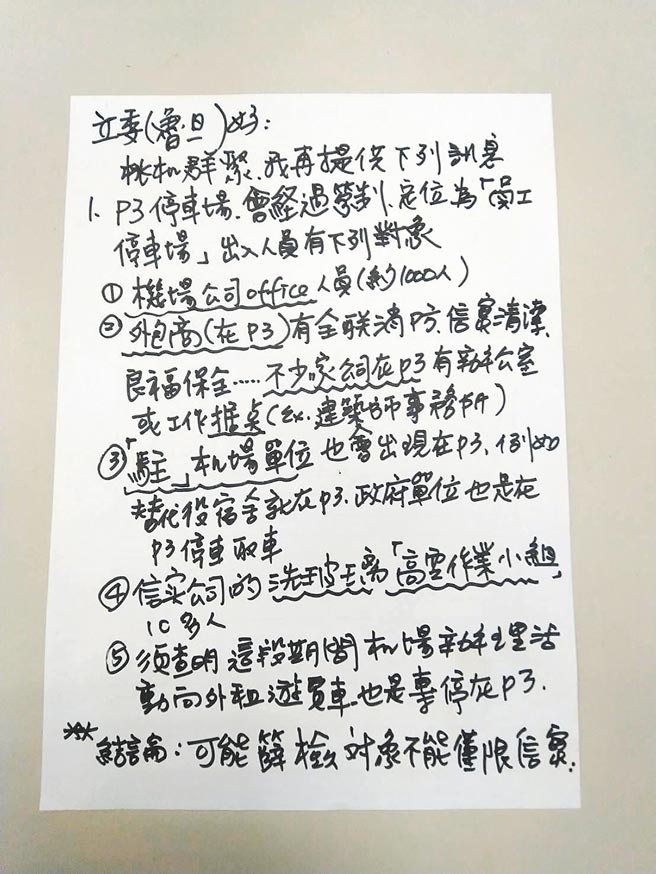 立委(魯旦)好:
桃机群聚.我再提供下列訊息
1、P3停車場.會経過管制、定位為「員工
停車場」出入人員有下列對象
① 機場公司office人員(約1000人)
② 外包商(在P3)有全联消防.信実清潔.
良福保全……不少家公司在P3有辦公室
或工作据点(ex.建築師事務所)
③「駐」机場單位也會出現在P3.例如
替代役宿舍就在P3.政府單位也是在
P3停車取車
④ 信实公司的洗玻璃「高空作業小組」
10多人
⑤ 須查明這段期間机場辦理活
動向外租遊覽車.也是專停在P3.
※※結論:可能篩檢对象不能僅限信実.